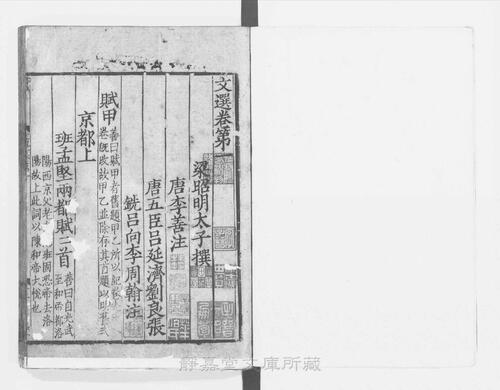 文選卷第一
梁昭明太子撰
唐李善注
唐五臣呂延濟劉良張
銑呂向李周翰注
賦甲
善曰賦甲者舊題甲乙所以紀卷
卷既改故甲乙並除存其首題以明舊式
京都上
班孟堅兩都賦二首
善曰自光武
至和帝都洛
陽西京父老有怨班固恐帝去洛
陽故上此詞以諫和帝大悅也
靜嘉堂文庫所藏